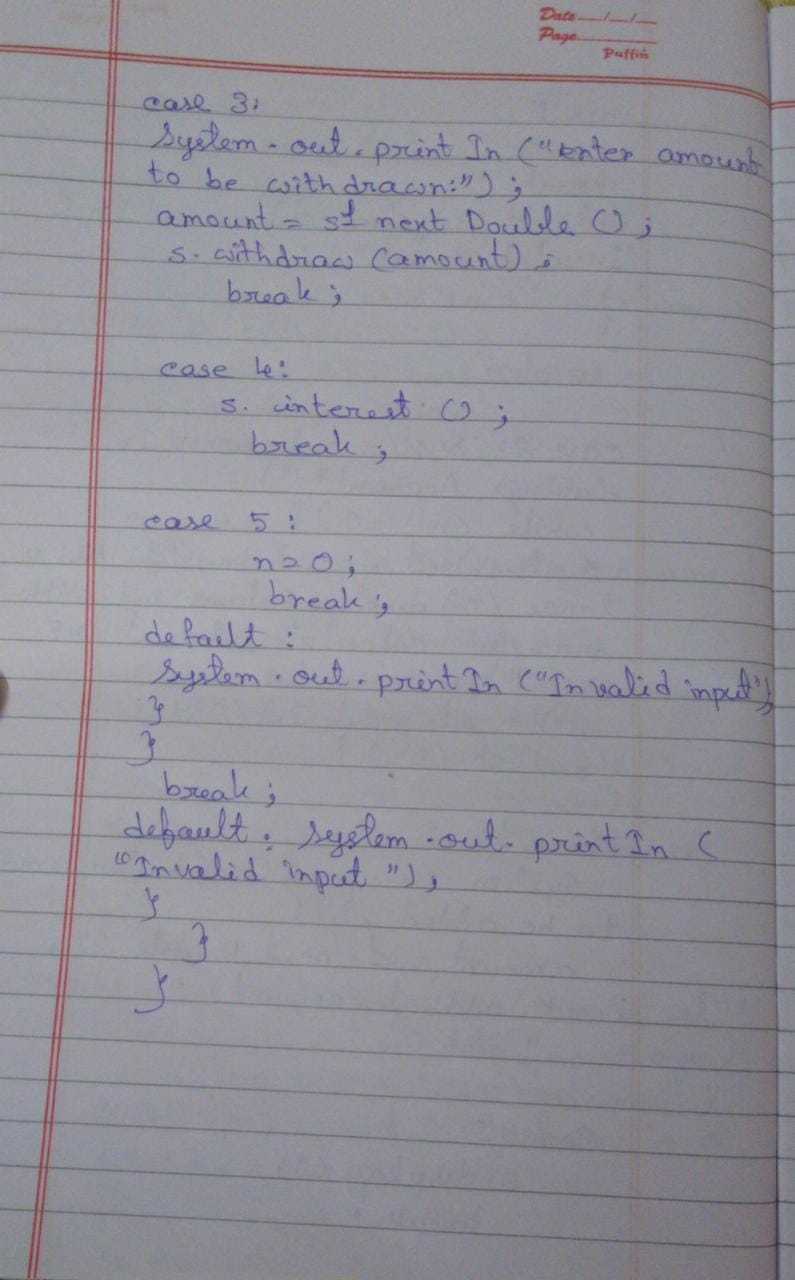 Date__/__/__
Page______
Puffin
case 3:
System.out.print In ("enter amount
to be withdrawn:");
amount = s1 next Double ();
s. withdraw (amount);
break;
case 4:
s. interest ();
break;
case 5:
n=0;
break;
default:
System.out.print In ("Invalid input");
}
}
break;
default: System.out.print In (
"Invalid input");
}
}
}